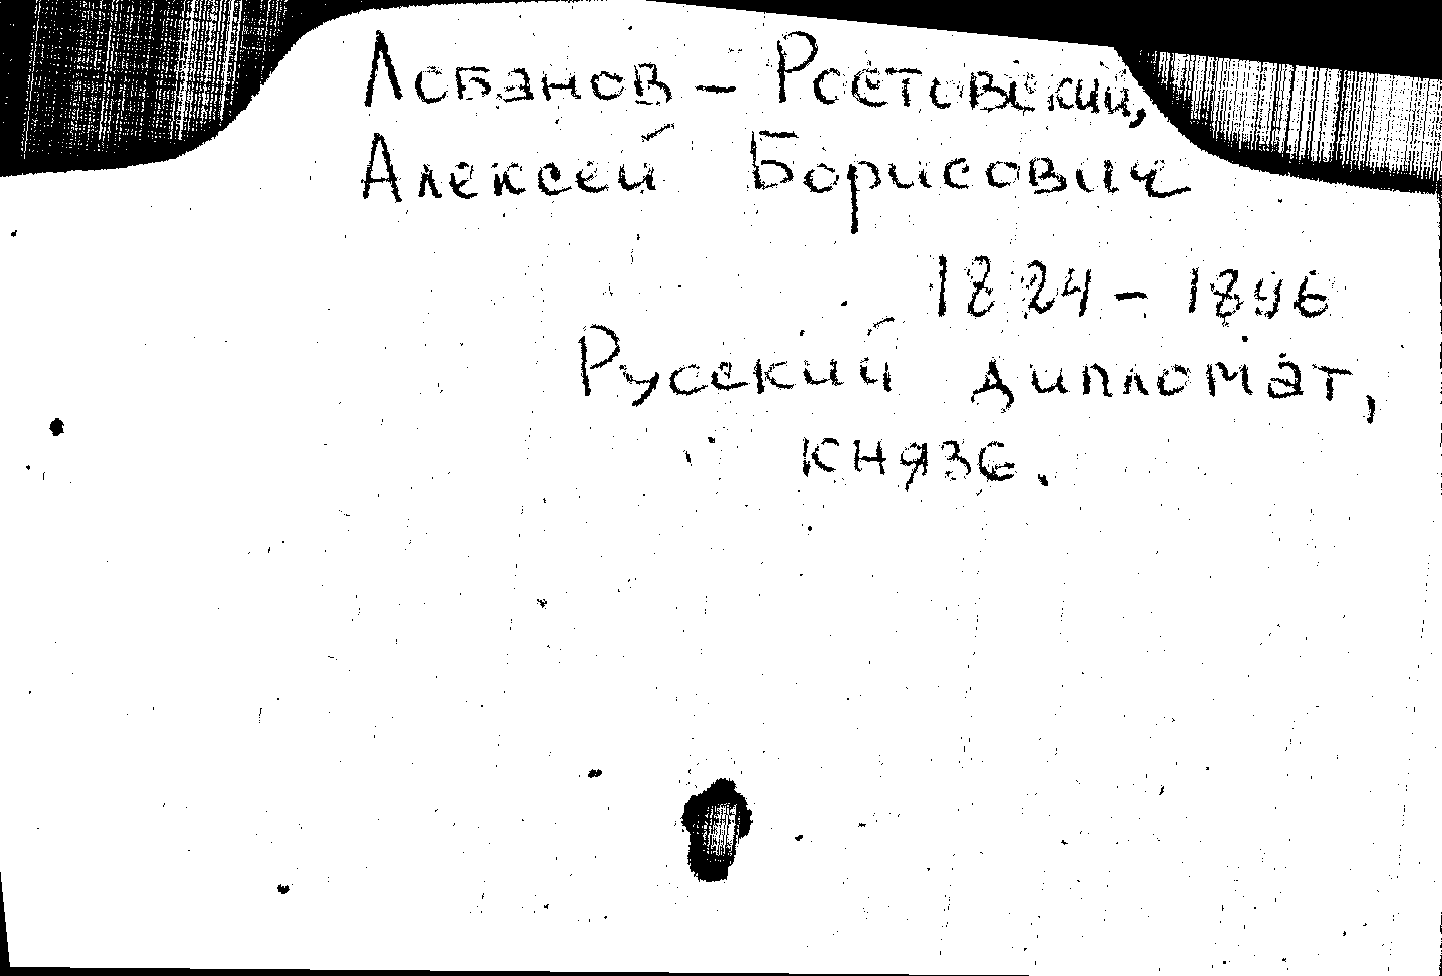 Лобанов - Ростовский,
Алексей Борисович
1824 - 1896
Русский дипломат,
князь.